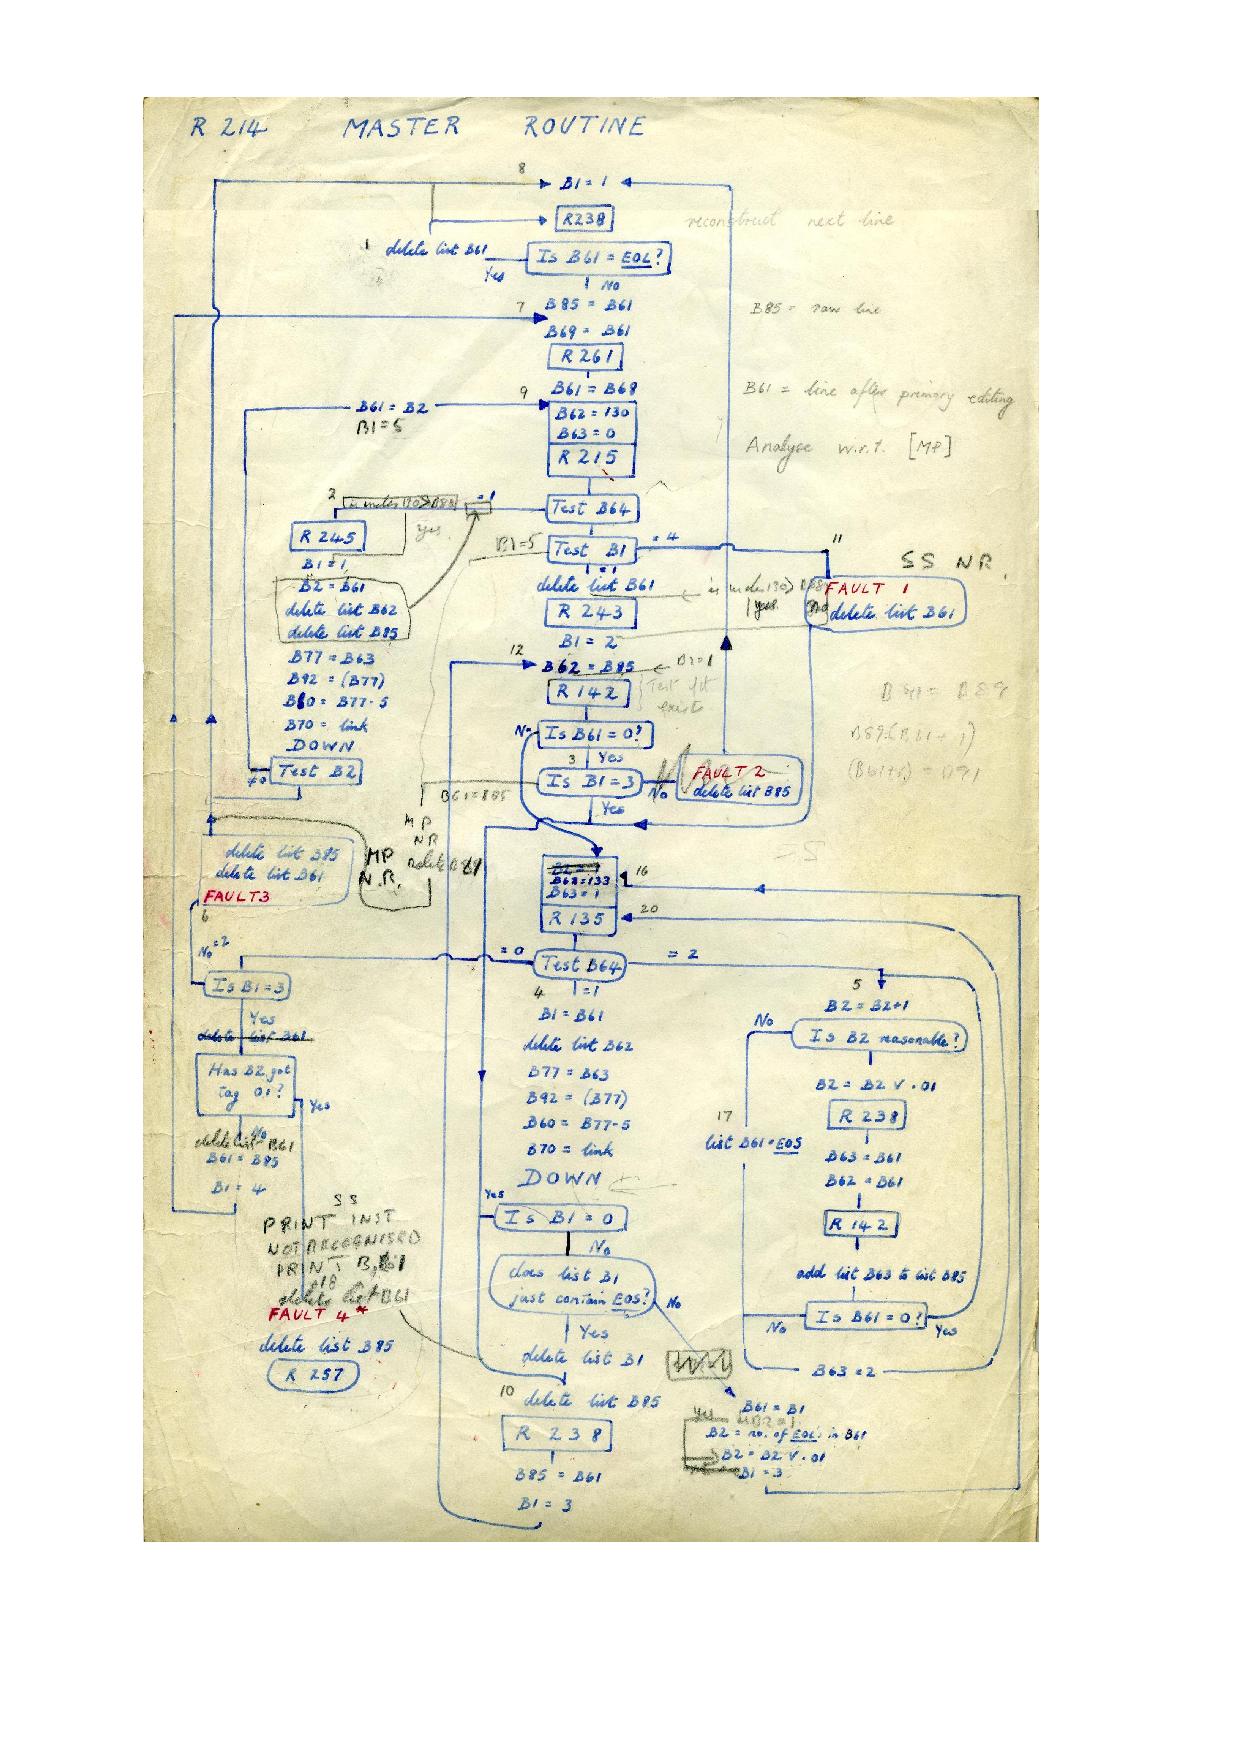 R 214 MASTER ROUTINE
8
B1 = 1
R238
reconstruct next line
1
delete list B61
Is B61 = EOL?
Yes
No
B85 = B61
B85 = raw line
7
B69 = B61
R 261
B61 = B68
B61 = line after primary editing
9
B61 = B2
B1 = 5
B62 = 130
B63 = 0
R 215
Analyse w.r.t. [MP]
2
= 1
Test B64
yes
R 245
B1 = 1
B2 = B61
delete list B62
delete list B85
B77 = B63
B92 = (B77)
B60 = B77-5
B70 = link
DOWN
Test B2
≠0
B1=5
Test B1
= 4
= 1
delete list B61
R 243
B1 = 2
is index 130 > B88
yes
No
11
SS NR
FAULT 1
delete list B61
12
B62 = B85
B2=1
R 142
Test if
exists
No
Is B61 = 0?
3
Yes
Is B1 = 3
No
Yes
FAULT 2
delete list B85
B61=B85
MP
NR
MP
N.R.
delete list B85
delete list B61
FAULT3
6
B62=133
B63=1
R 135
16
20
No
=2
= 0
Test B64
= 2
Is B1 = 3
Yes
delete list B61
Has B2 got
tag 01?
Yes
No
delete list B61
B61 = B85
B1 = 4
4
=1
B1 = B61
delete list B62
B77 = B63
B92 = (B77)
B60 = B77-5
B70 = link
DOWN
Yes
Is B1 = 0
No
does list B1
just contain EOS?
No
Yes
delete list B1
5
B2 = B2+1
No
Is B2 reasonable?
B2 = B2 V .01
R 238
17
list B61=EOS
B63 = B61
B62 = B61
R 142
add list B63 to list B85
Is B61 = 0?
No
Yes
B63 = 2
SS
PRINT INST
NOT RECOGNISED
PRINT B,
delete list B61
FAULT 4*
delete list B85
R 257
10
delete list B85
R 238
B85 = B61
B1 = 3
B61 = B1
Yes
B2 = no. of EOL's in B61
B2 = B2 V .01
B1 = 3